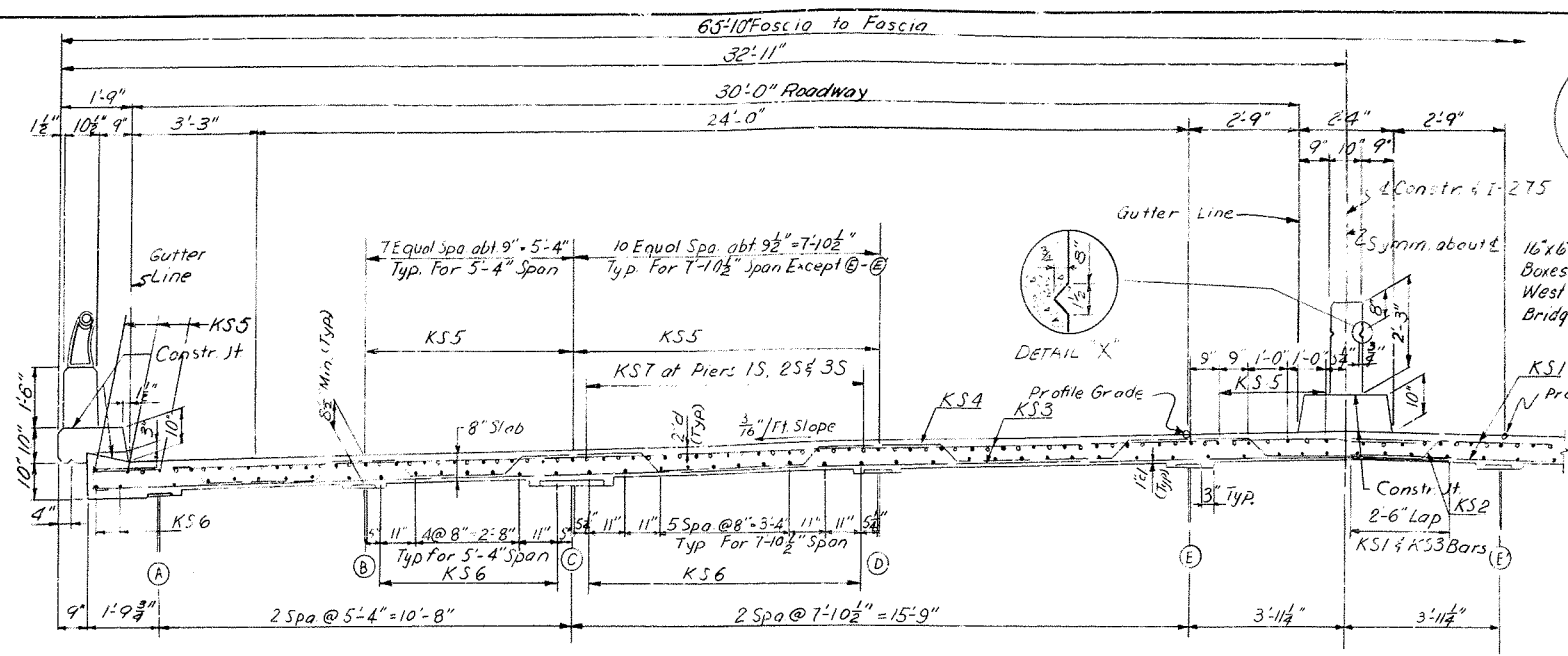 65'-10" Fascia to Fascia
32'-11"
1'-9"
30'-0" Roadway
1½" 10½" 9" 3'-3" 24'-0" 2'-9" 2'-4" 2'-9"
9" 10" 9"
℄ Constr. & I-275
Gutter Line
℄ Symm. about ℄
16"x6"
Boxes
West
Bridg
Gutter
Line
7 Equal Spa. abt. 9" = 5'-4"
Typ. For 5'-4" Span
10 Equal Spa. abt. 9½" = 7'-10½"
Typ. For 7'-10½" Span Except Ⓔ-Ⓔ
¾" 8"
1½"
DETAIL "X"
8" 2'-3"
KS5
Constr. Jt.
KS5
KS5
KS7 at Piers 1S, 2S & 3S
9" 9" 1'-0" 1'-0"
KS5
10"
KS1
Pro
1'-6"
10" 10"
3" 10"
8½" Min. (Typ)
8" Slab
2"cl (Typ)
3/16"/Ft. Slope
KS4
KS3
Profile Grade
1"cl (Typ)
3" Typ.
Constr. Jt.
KS2
2'-6" Lap
KS1 & KS3 Bars
4"
KS6
5" 11" 4@8"=2'-8" 11" 5"
Typ for 5'-4" Span
KS6
5¼" 11" 11" 5 Spa @8"=3'-4" 11" 11" 5¼"
Typ For 7'-10½" Span
KS6
A B C D E E'
9" 1'-9¾" 2 Spa @ 5'-4" = 10'-8" 2 Spa @ 7'-10½" = 15'-9" 3'-11¼" 3'-11¼"